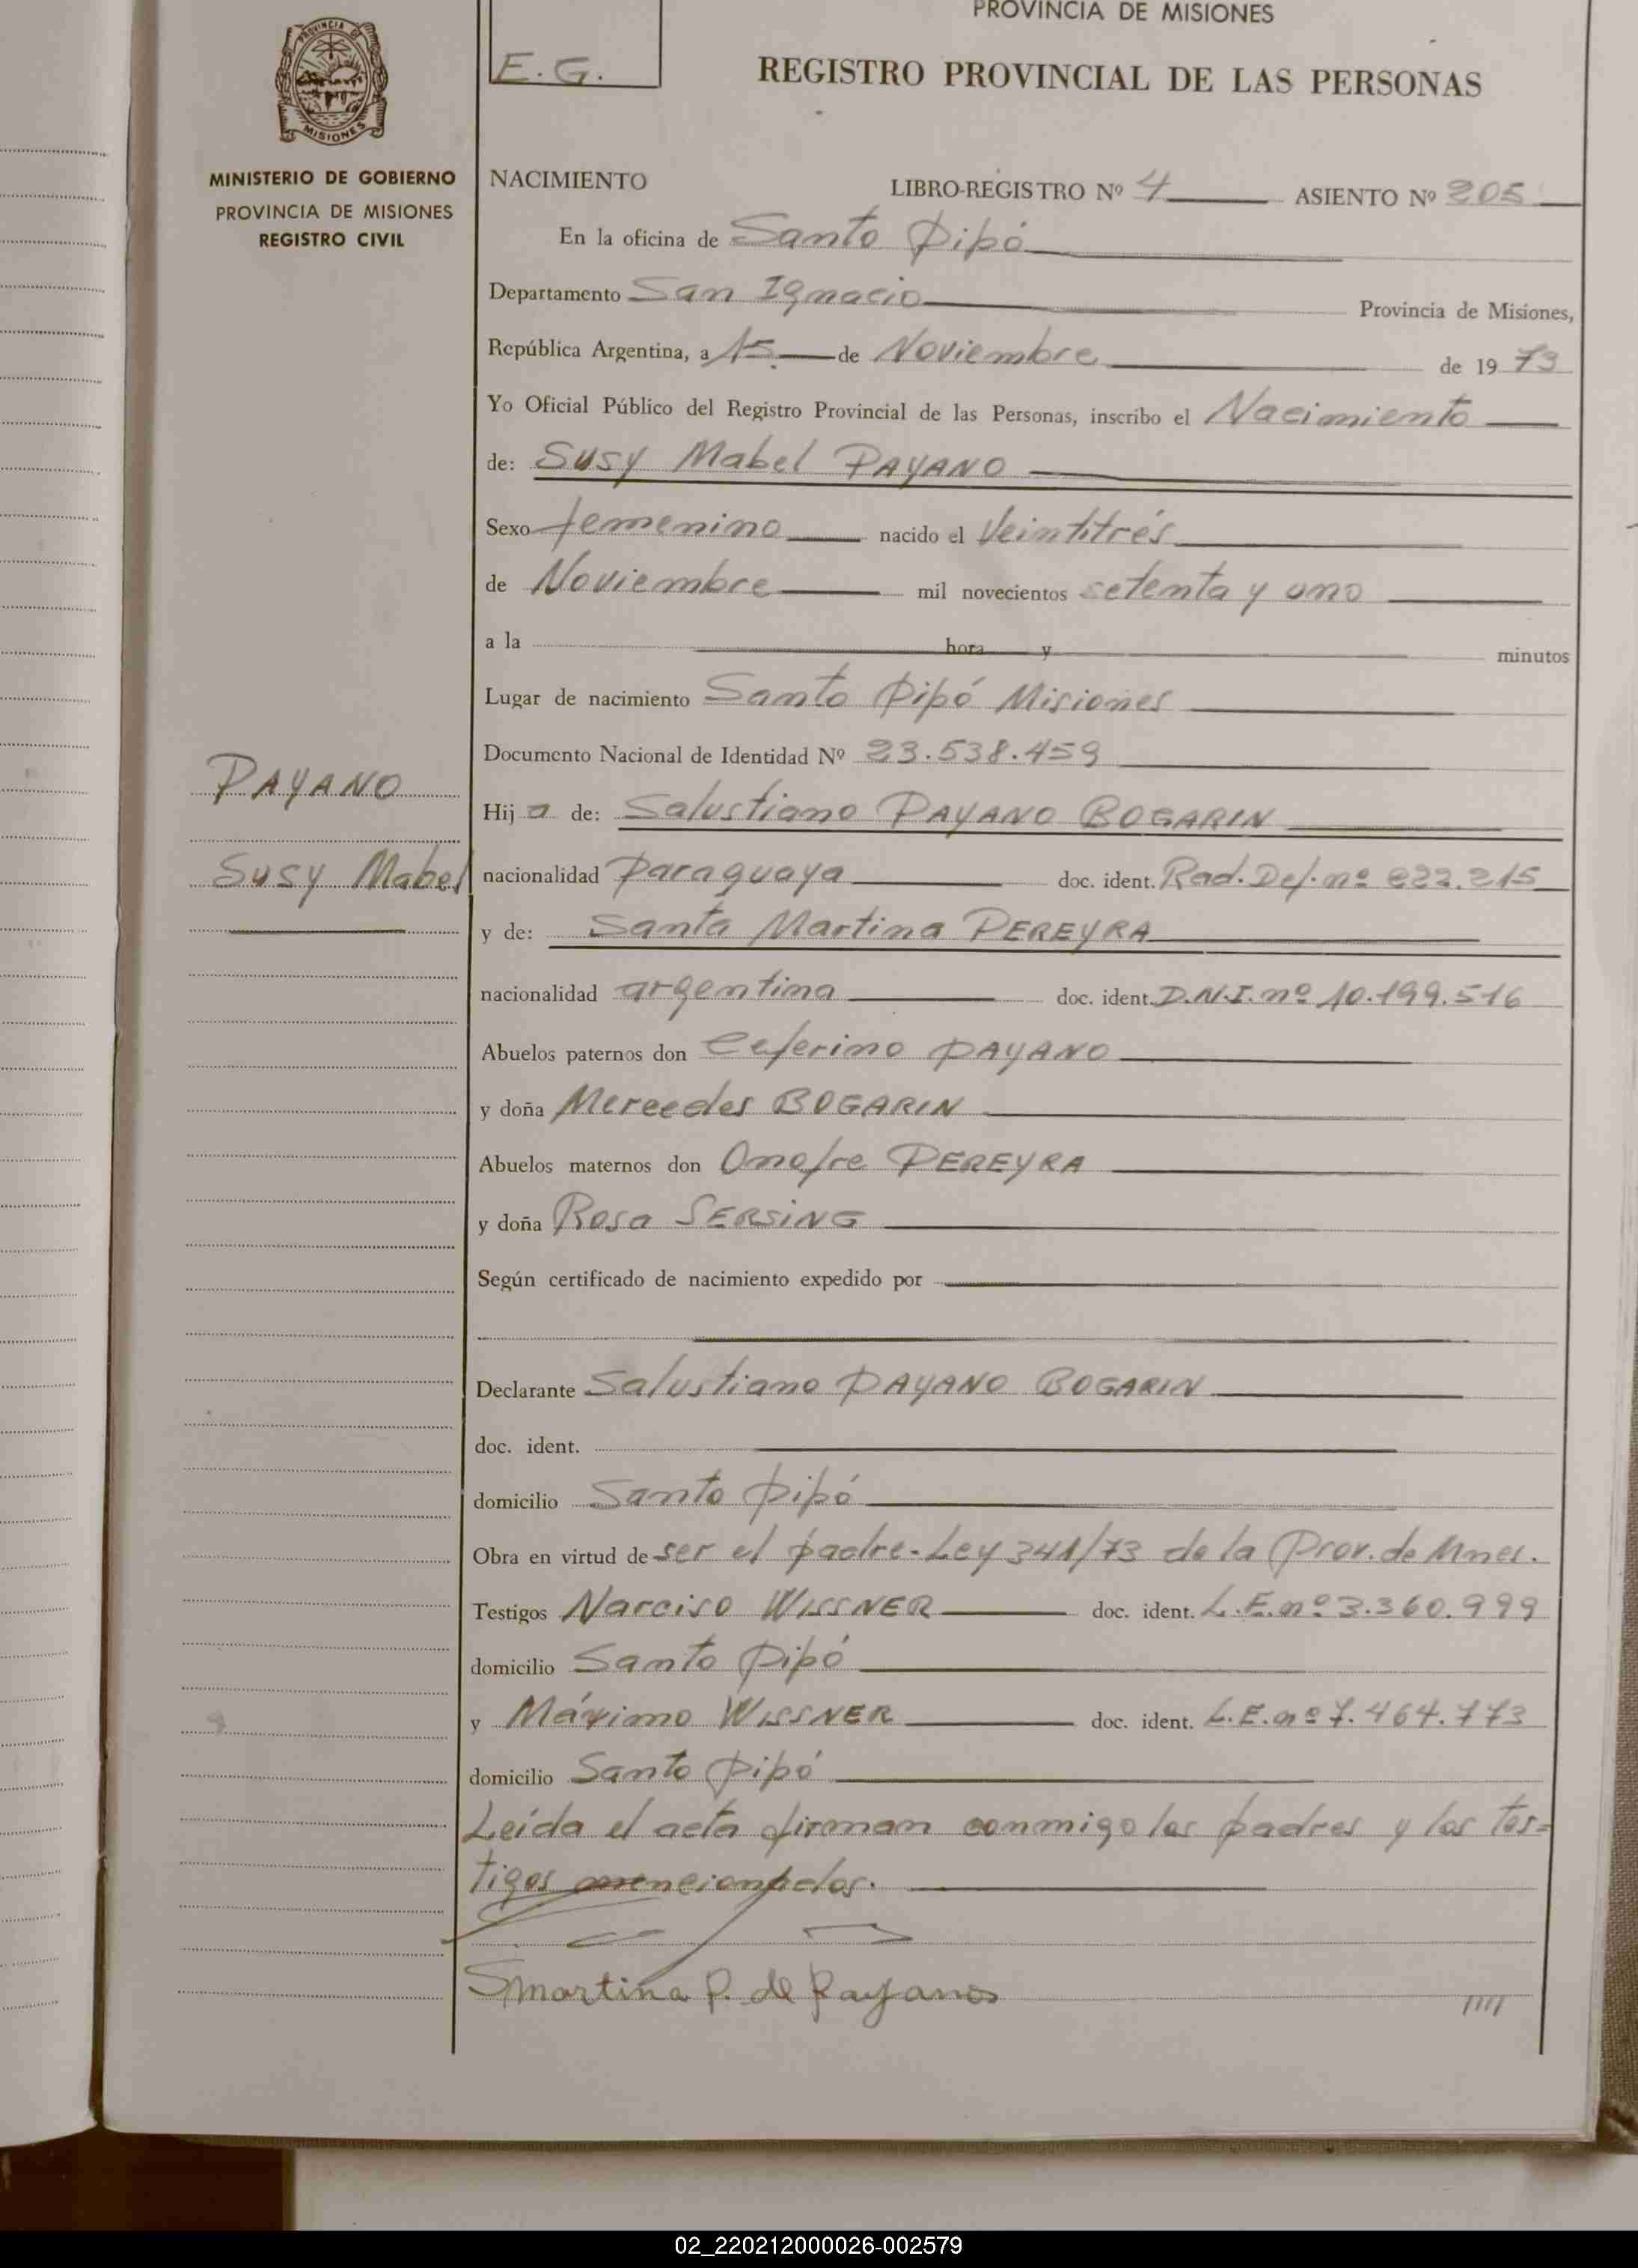 PROVINCIA DE MISIONES
E. G.
REGISTRO PROVINCIAL DE LAS PERSONAS
PROVINCIA DE
MISIONES
MINISTERIO DE GOBIERNO
PROVINCIA DE MISIONES
REGISTRO CIVIL
NACIMIENTO LIBRO-REGISTRO Nº 4 ASIENTO Nº 205
En la oficina de Santo Pipó
Departamento San Ignacio Provincia de Misiones,
República Argentina, a 15 de Noviembre de 1973
Yo Oficial Público del Registro Provincial de las Personas, inscribo el Nacimiento
de: Susy Mabel PAYANO
Sexo femenino nacido el Veintitrés
de Noviembre mil novecientos setenta y uno
a la hora y minutos
Lugar de nacimiento Santo Pipó Misiones
Documento Nacional de Identidad Nº 23.538.459
PAYANO
Hija de: Salustiano PAYANO BOGARIN
Susy Mabel
nacionalidad Paraguaya doc. ident. Rad. Def. nº 822.215
y de: Santa Martina PEREYRA
nacionalidad argentina doc. ident. D.N.I. nº 10.199.516
Abuelos paternos don Ceferino PAYANO
y doña Mercedes BOGARIN
Abuelos maternos don Onofre PEREYRA
y doña Rosa SERSING
Según certificado de nacimiento expedido por
Declarante Salustiano PAYANO BOGARIN
doc. ident.
domicilio Santo Pipó
Obra en virtud de ser el padre- Ley 341/73 de la Prov. de Mnes.
Testigos Narciso WISSNER doc. ident. L.E. nº 3.360.999
domicilio Santo Pipó
y Máximo WISSNER doc. ident. L.E. nº 7.464.773
domicilio Santo Pipó
Leída el acta firman conmigo los padres y los tes=
tigos mencionados.
SMartina P. de Payano
/////
02_220212000026-002579